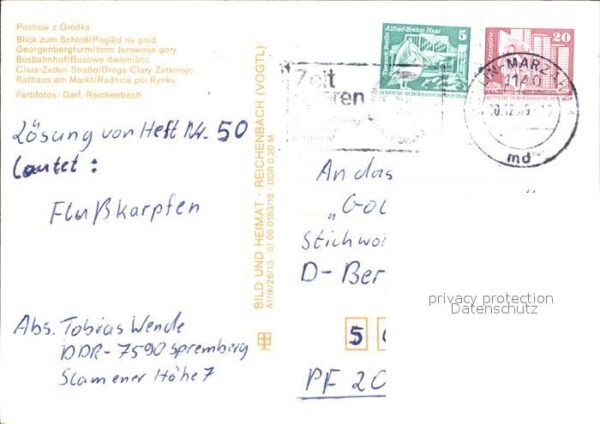 Postrow z Grodka
Blick zum Schloß/Pogled na grod
Georgenbergturm/torm Juroweje gory
Busbahnhof/Busowe dwórnišćo
Clara-Zetkin-Straße/Droga Clary Zetkinoje
Rathaus am Markt/Radnica pśi Rynku
Farbfotos: Darr, Reichenbach
Lösung von Heft Nr. 50
Lautet:
Flußkarpfen
Abs. Tobias Wende
DDR-7590 Spremberg
Slamener Höhe 7
BILD UND HEIMAT · REICHENBACH (VOGTL)
Afrik/26/13 · 01 06 0183/12 · DDR 0,20 M
Zeit
Alfred-Brehm Haus
5
Tierpark Berlin
20
1140
md
An das
„Gol
Stichwo
D-Ber
5
PF 20
privacy protection
Datenschutz